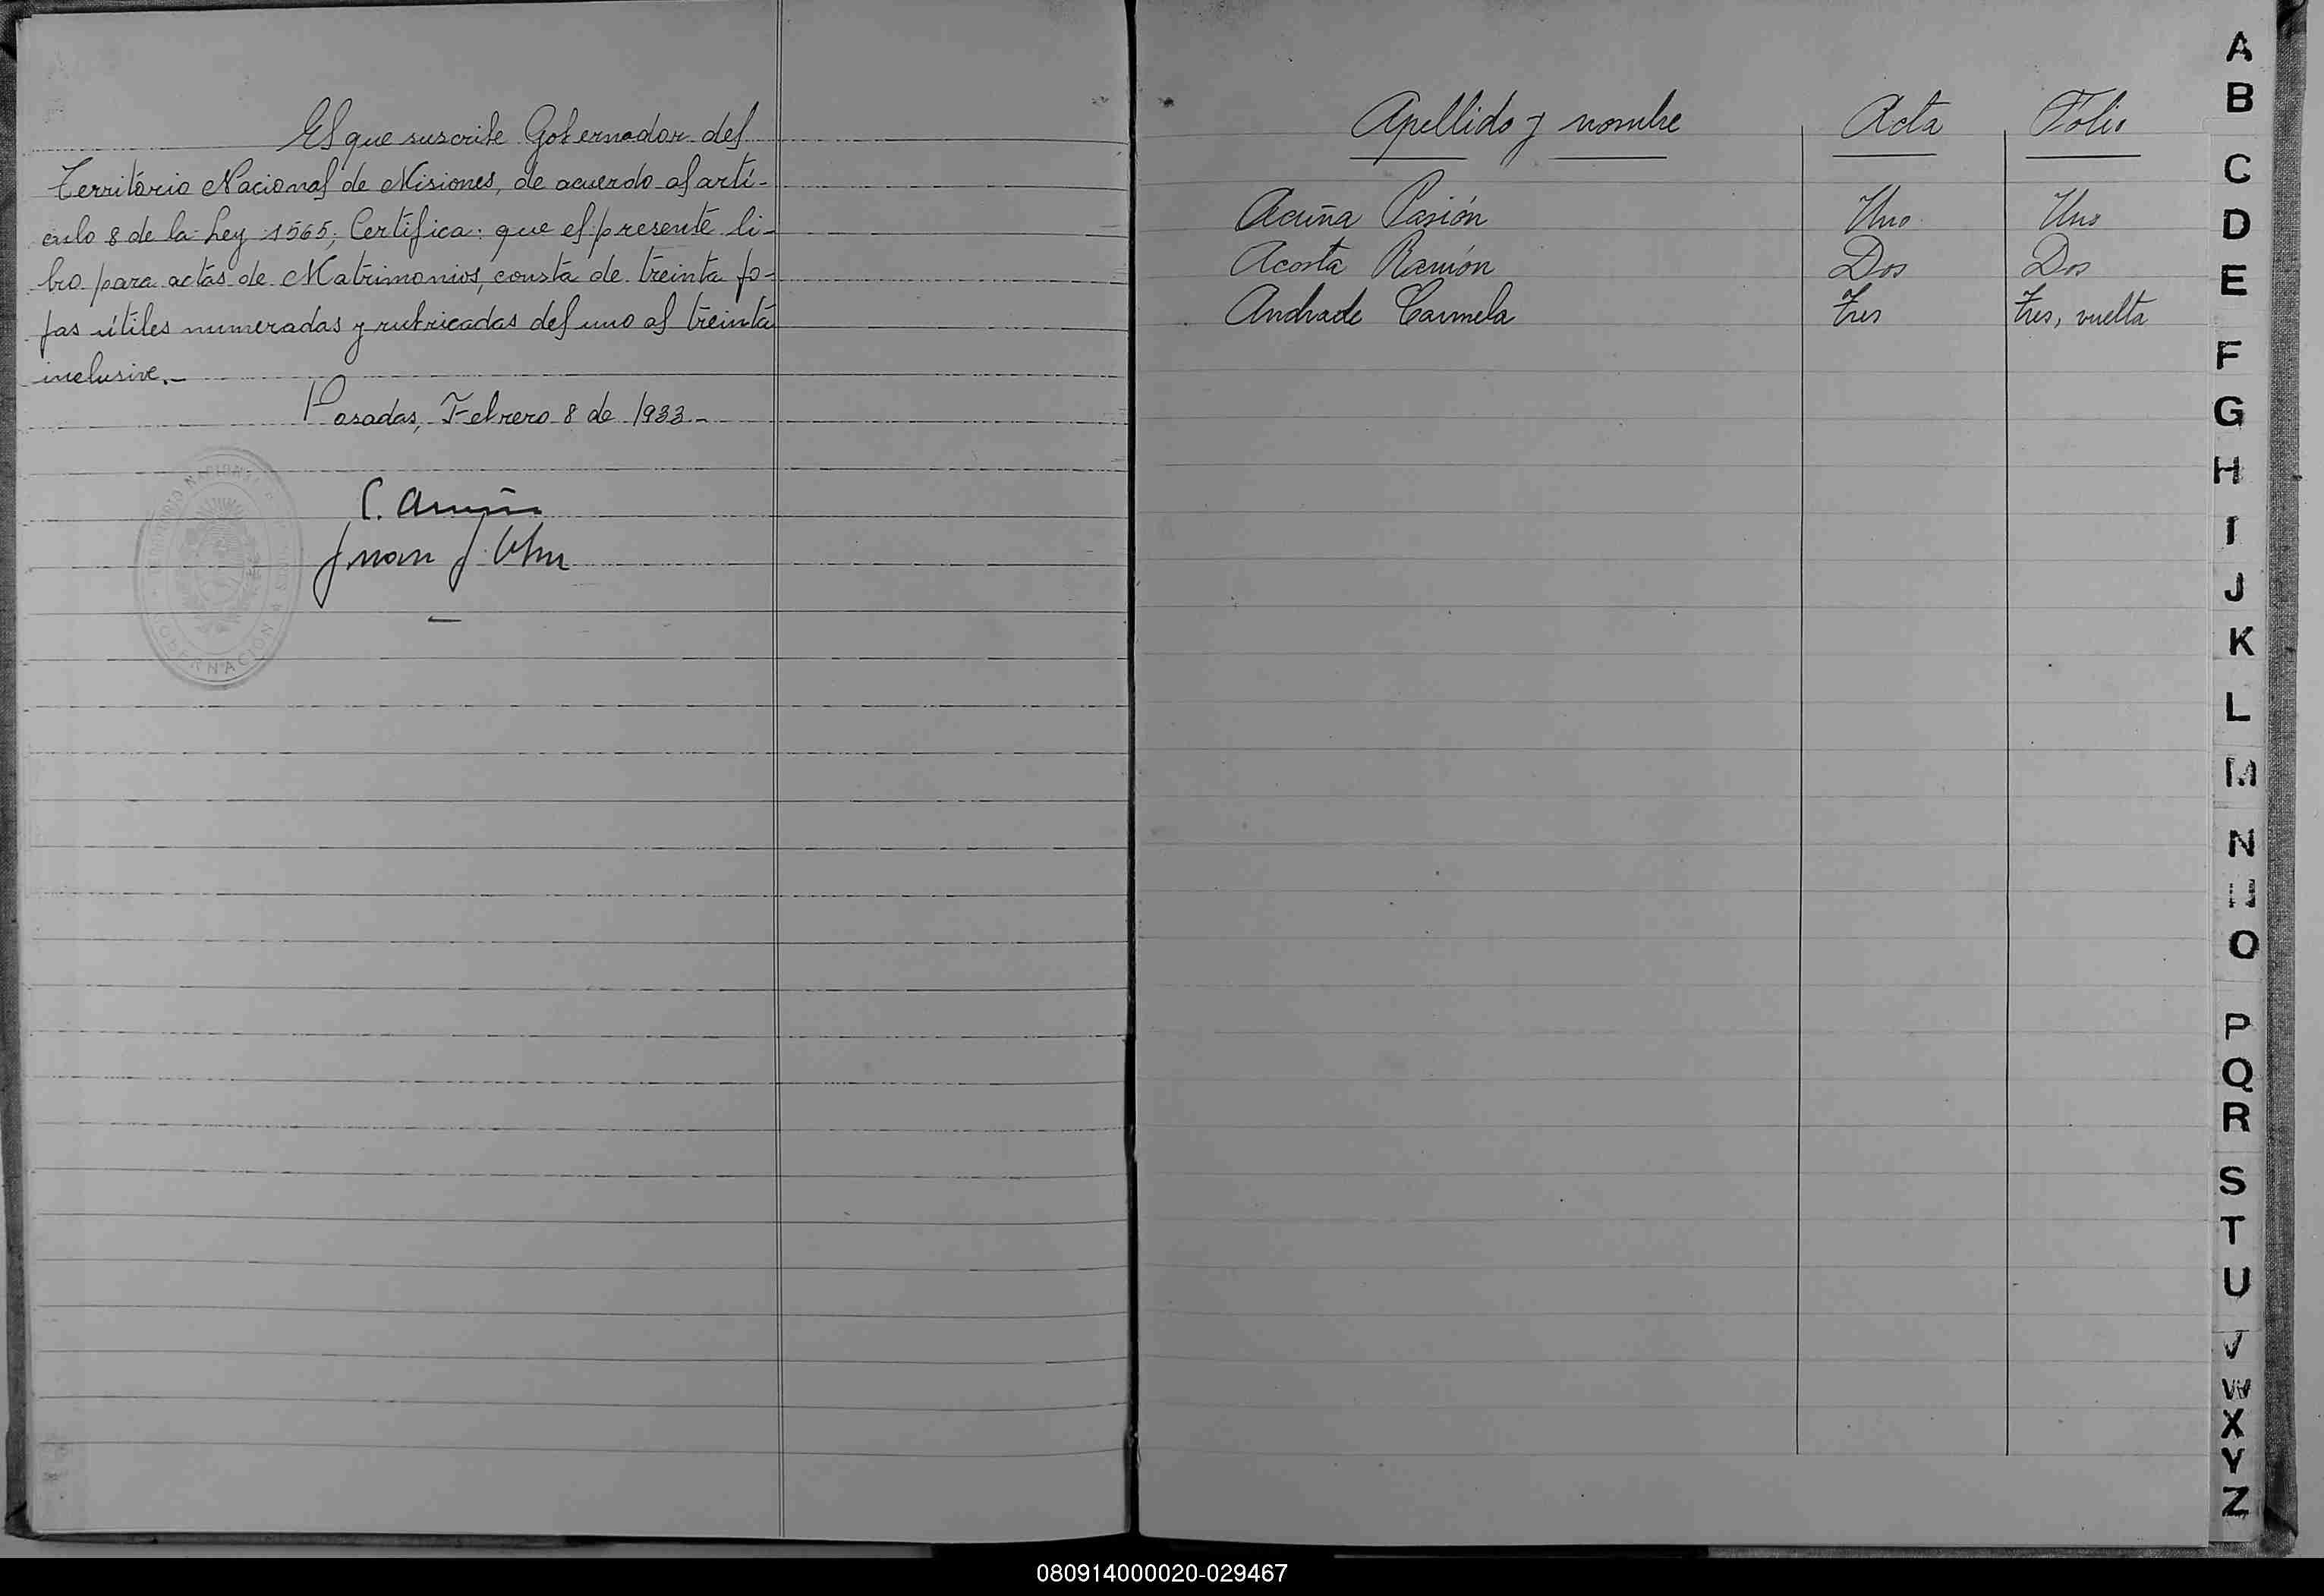 El que suscribe Gobernador del
Territorio Nacional de Misiones, de acuerdo al artí-
culo 8 de la Ley 1565; Certifica: que el presente li-
bro para actas de Matrimonios, consta de treinta fo-
jas útiles numeradas y rubricadas del uno al treinta
inclusive.-
Posadas, Febrero 8 de 1933-
C. Acuña
Juan J.
TERRITORIO NACIONAL DE MISIONES
GOBERNACION
Apellido y nombre Acta Folio
Acuña Pasión Uno Uno
Acosta Ramón Dos Dos
Andrade Carmela Tres Tres, vuelta
A
B
C
D
E
F
G
H
I
J
K
L
M
N
Ñ
O
P
Q
R
S
T
U
V
W
X
Y
Z
080914000020-029467